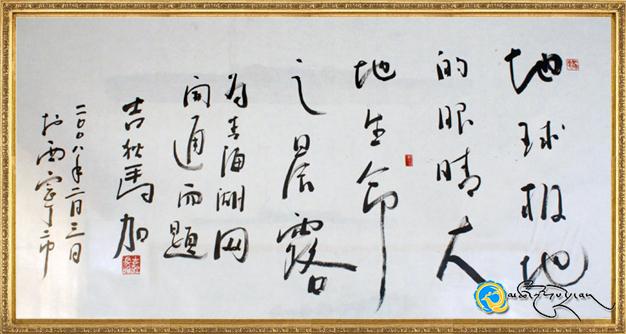 地球极地
的眼睛大
地生命
之晨露
为青海湖网
开通而题
吉狄马加
二〇〇八年二月三日
于西宁市